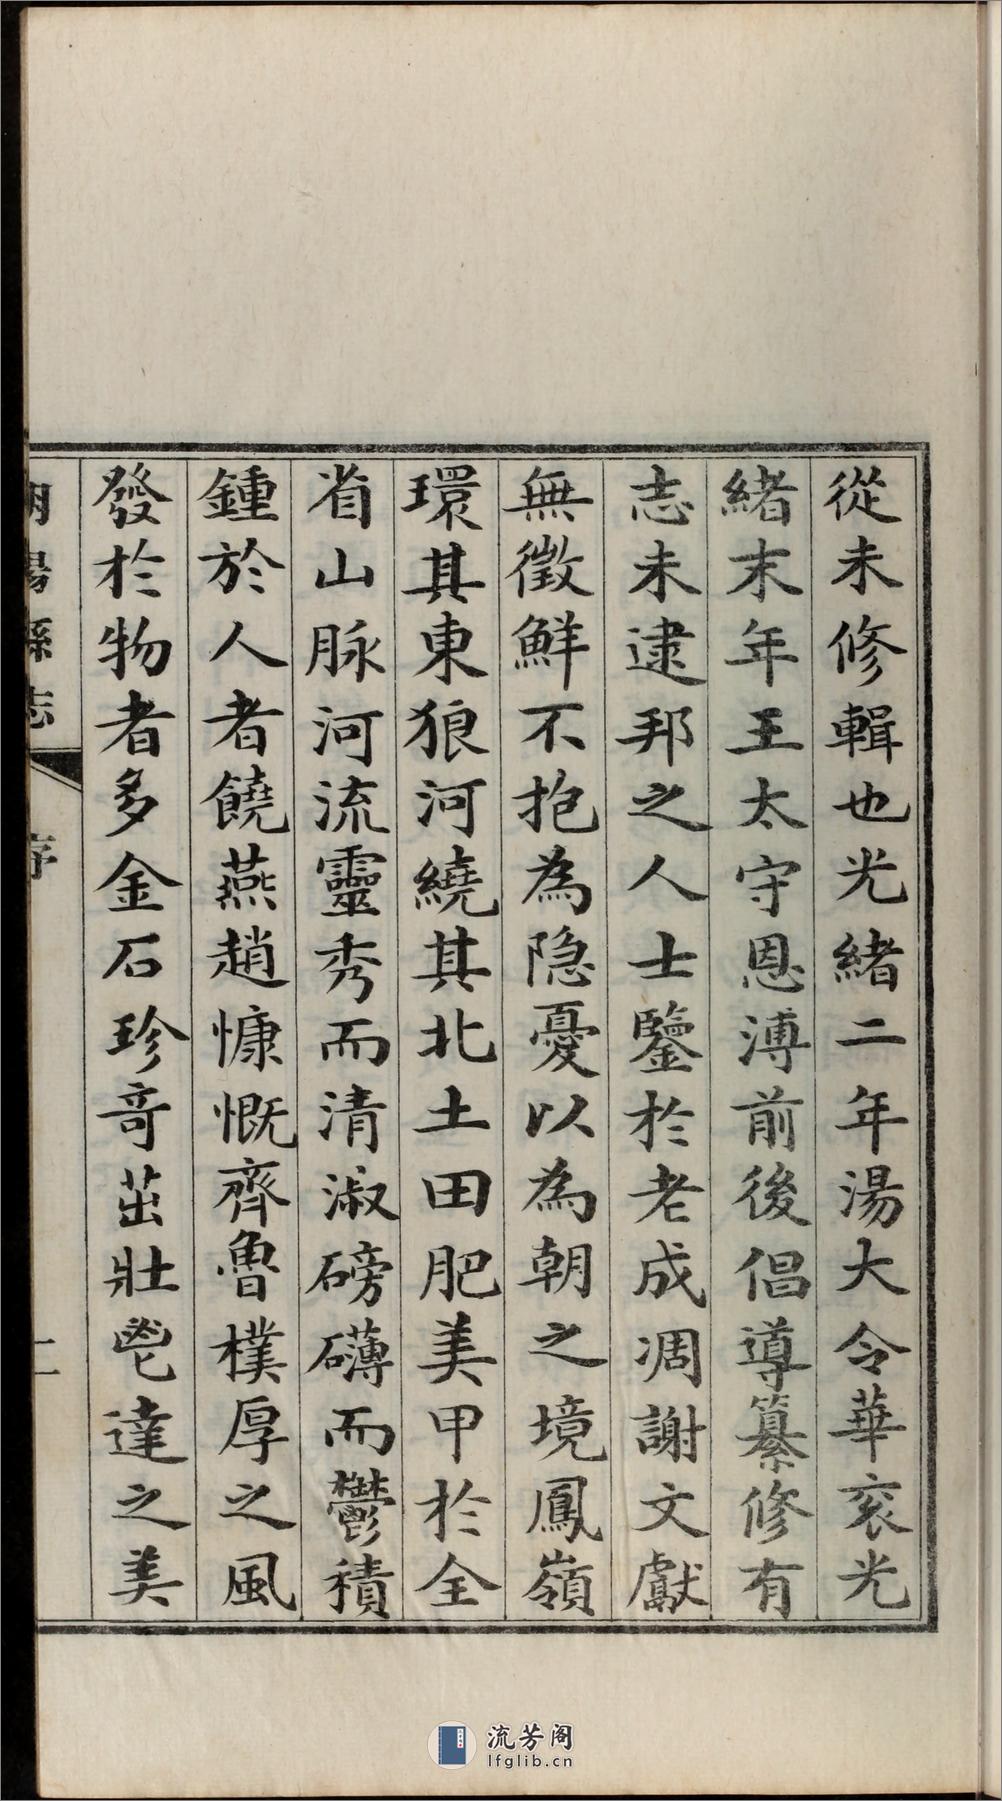 從未修輯也光緒二年湯大令華衮光
緒末年王太守恩溥前後倡導纂修有
志未逮邦之人士鑒於老成凋謝文獻
無徵鮮不抱為隱憂以為朝之境鳳嶺
環其東狼河繞其北土田肥美甲於全
省山脉河流靈秀而清淑磅礴而鬱積
鍾於人者饒燕趙慷慨齊魯樸厚之風
發於物者多金石珍奇茁壯鬯達之美
朝陽縣志
序
二
流芳阁
lfglib.cn